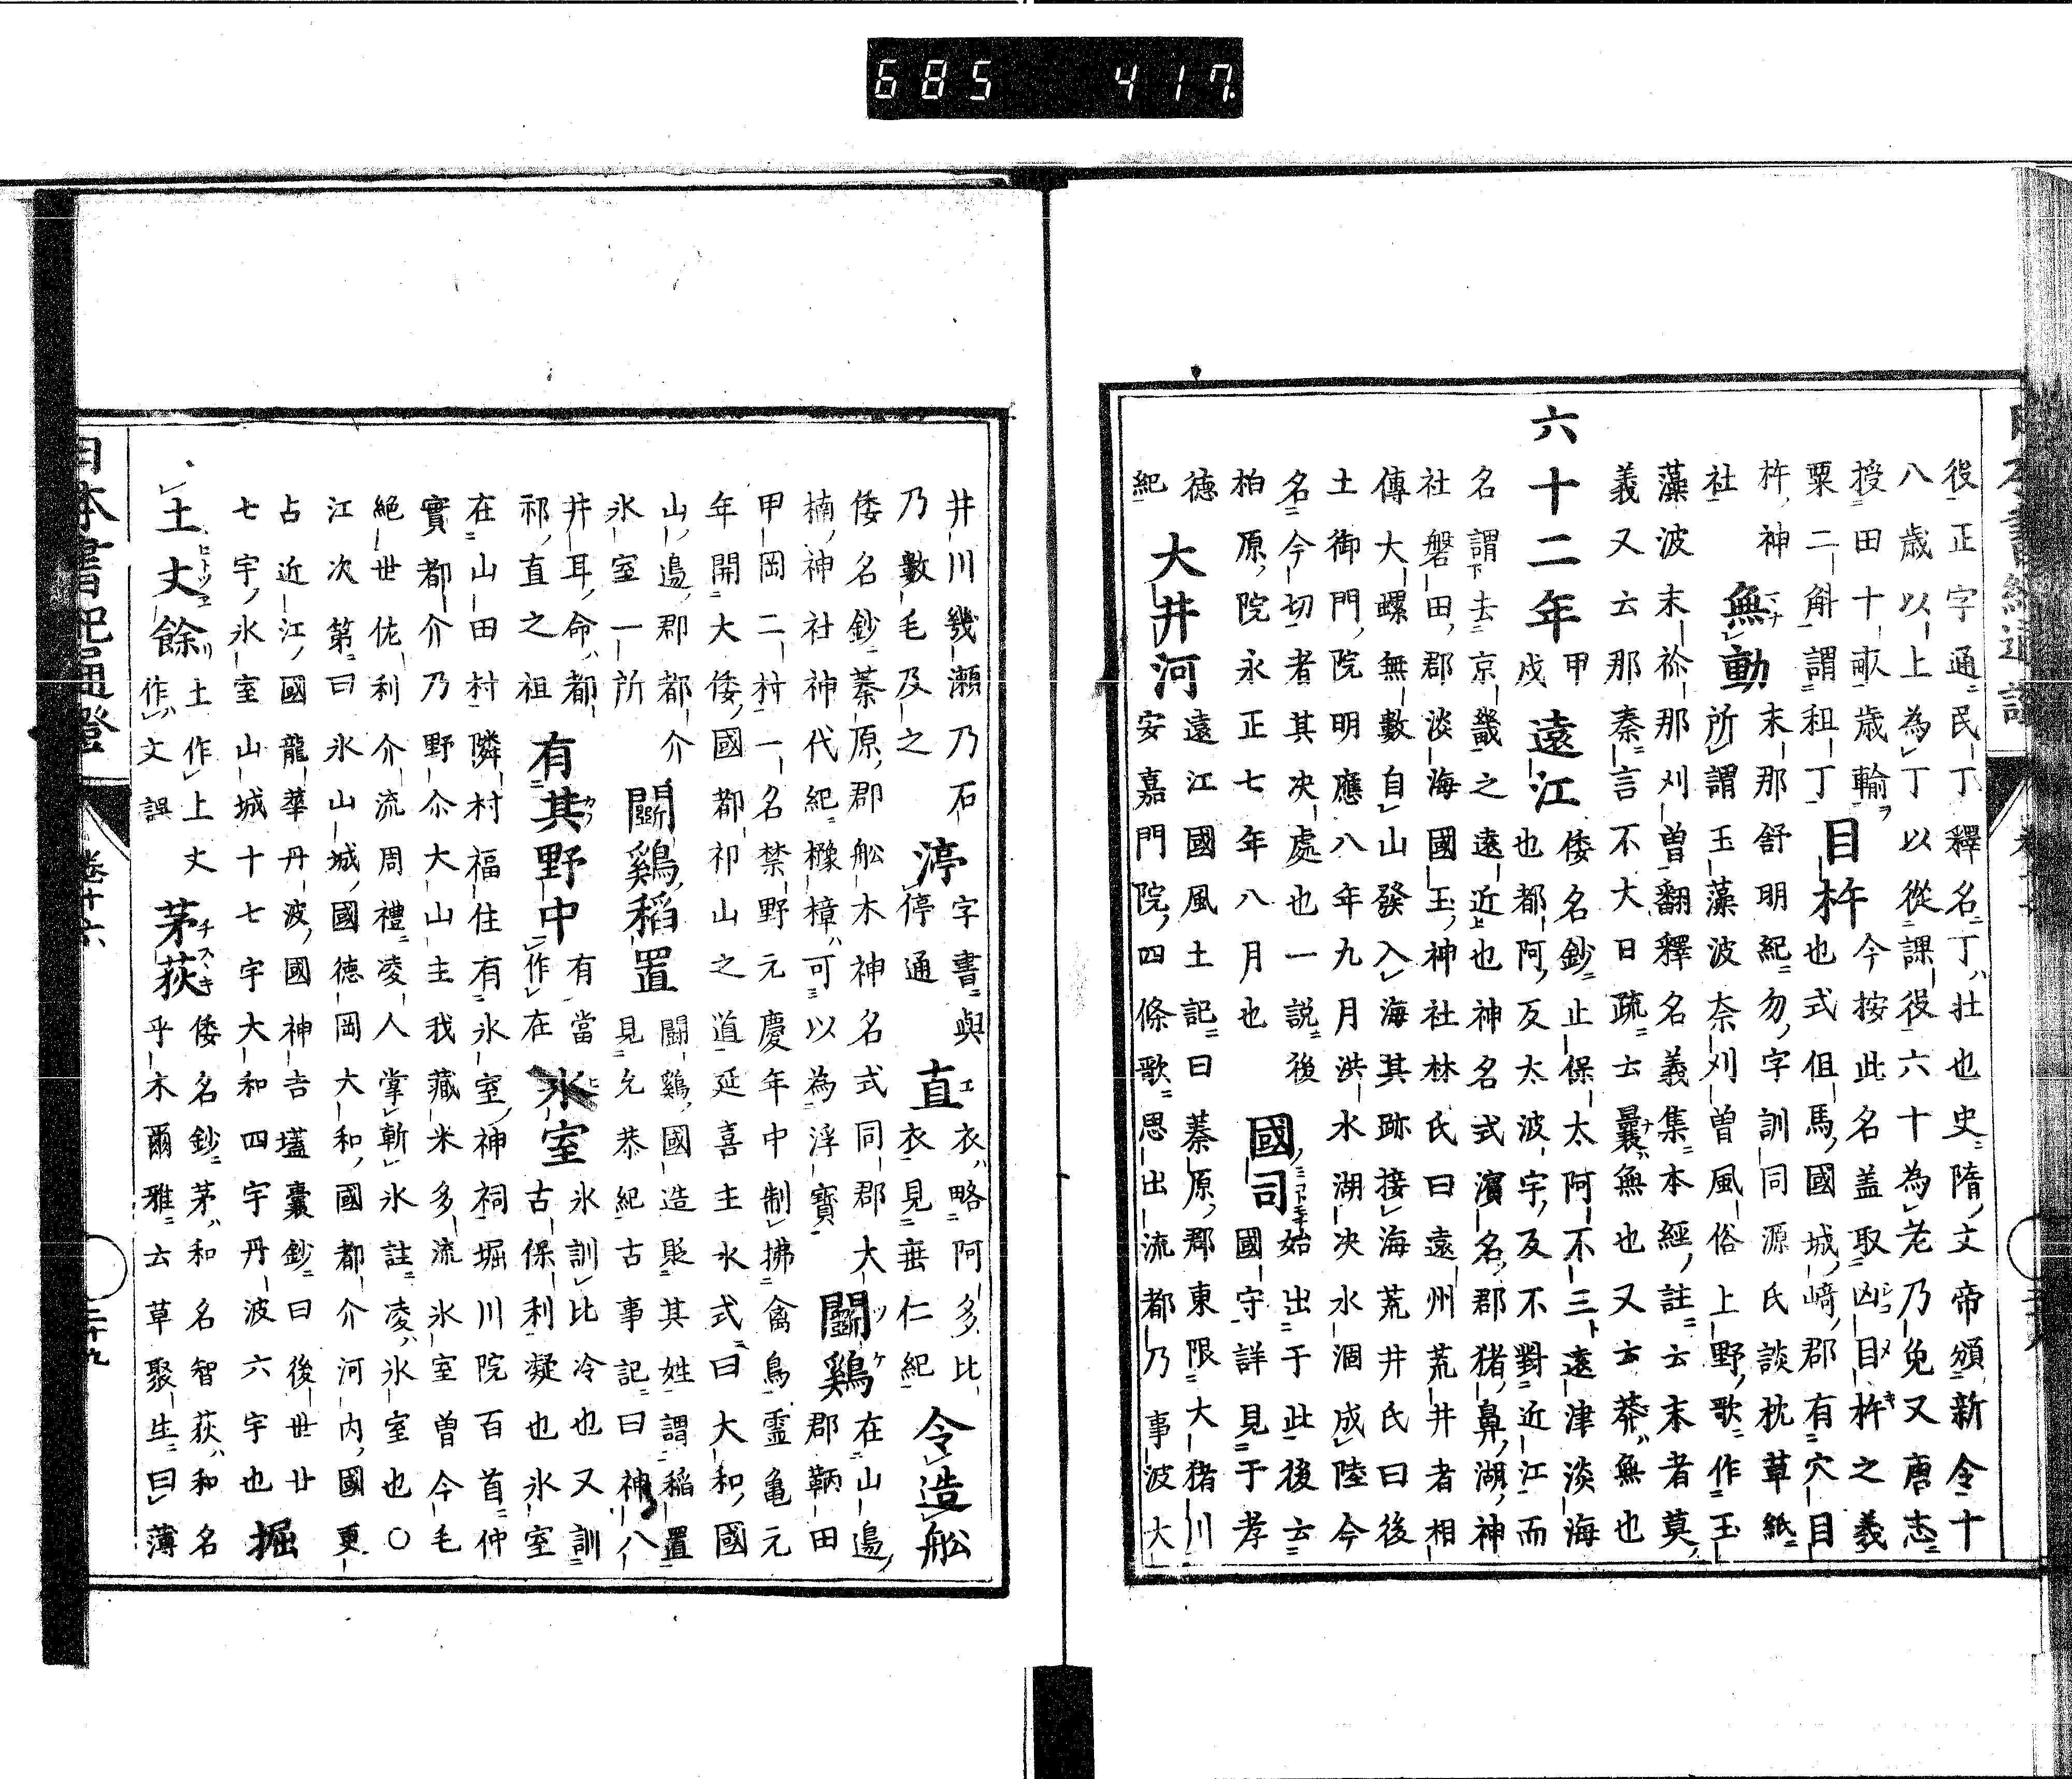 役正字通民丁釋名丁壯也史隋文帝頒新令十
八歳以上為丁以從課役六十為老乃免又唐志
授田十畝歳輸
粟二斛謂租丁
目杵
今按此名盖取凶目杵之義
也式伹馬國城﨑郡有穴目
杵神
社
無動
末那舒明紀勿字訓同源氏談枕草紙
所謂玉藻波奈刈曽風俗上野歌作玉
藻波末祢那刈曽翻釋名義集本經註云末者莫
義又云那秦言不大日疏云曩無也又云莽無也
六十二年
甲
戌
遠江
倭名鈔止保太阿不三遠津淡海
也都阿反太波字反不對近江而
名謂去京畿之遠近也神名式濱名郡猪鼻湖神
社磐田郡淡海國玉神社林氏曰遠州荒井者相
傳大螺無數自山發入海其跡接海荒井氏曰後
土御門院明應八年九月洪水湖决水涸成陸今
名今切者其决處也一説後
柏原院永正七年八月也
國司
始出于此後云
國守詳見于孝
德
紀
大井河
遠江國風土記曰蓁原郡東限大猪川
安嘉門院四條歌思出流都乃事波大
井川幾瀬乃石
乃數毛及之
渟
字書與
停通
直
衣略阿多比
衣見垂仁紀
令造舩
倭名鈔蓁原郡舩木神名式同郡大
楠神社神代紀櫲樟可以為浮寶
闘鷄
在山邊
郡鞆田
甲岡二村一名禁野元慶年中制拂禽鳥靈亀元
年開大倭國都祁山之道延喜主水式曰大和國
山邊郡都介
氷室一所
闘鷄稻置
闘鷄國造貶其姓謂稲置
見允恭紀古事記曰神八
井耳命都
祁直之祖
有其野中
有當
作在
氷室
氷訓比冷也又訓
古保利凝也氷室
在山田村隣村福住有氷室神祠堀川院百首仲
實都介乃野介大山主我藏米多流氷室曽今毛
絶世佐利介流周禮凌人掌斬氷註凌氷室也〇
江次第曰氷山城國德岡大和國都介河内國更
占近江國龍華丹波國神吉壒嚢鈔曰後世廿
七宇氷室山城十七宇大和四宇丹波六宇也
掘
土丈餘
土作上丈
作文誤
茅荻
倭名鈔茅和名智荻和名
乎木爾雅云草聚生曰薄
日本書紀通證
卷十六
二十九
685 417